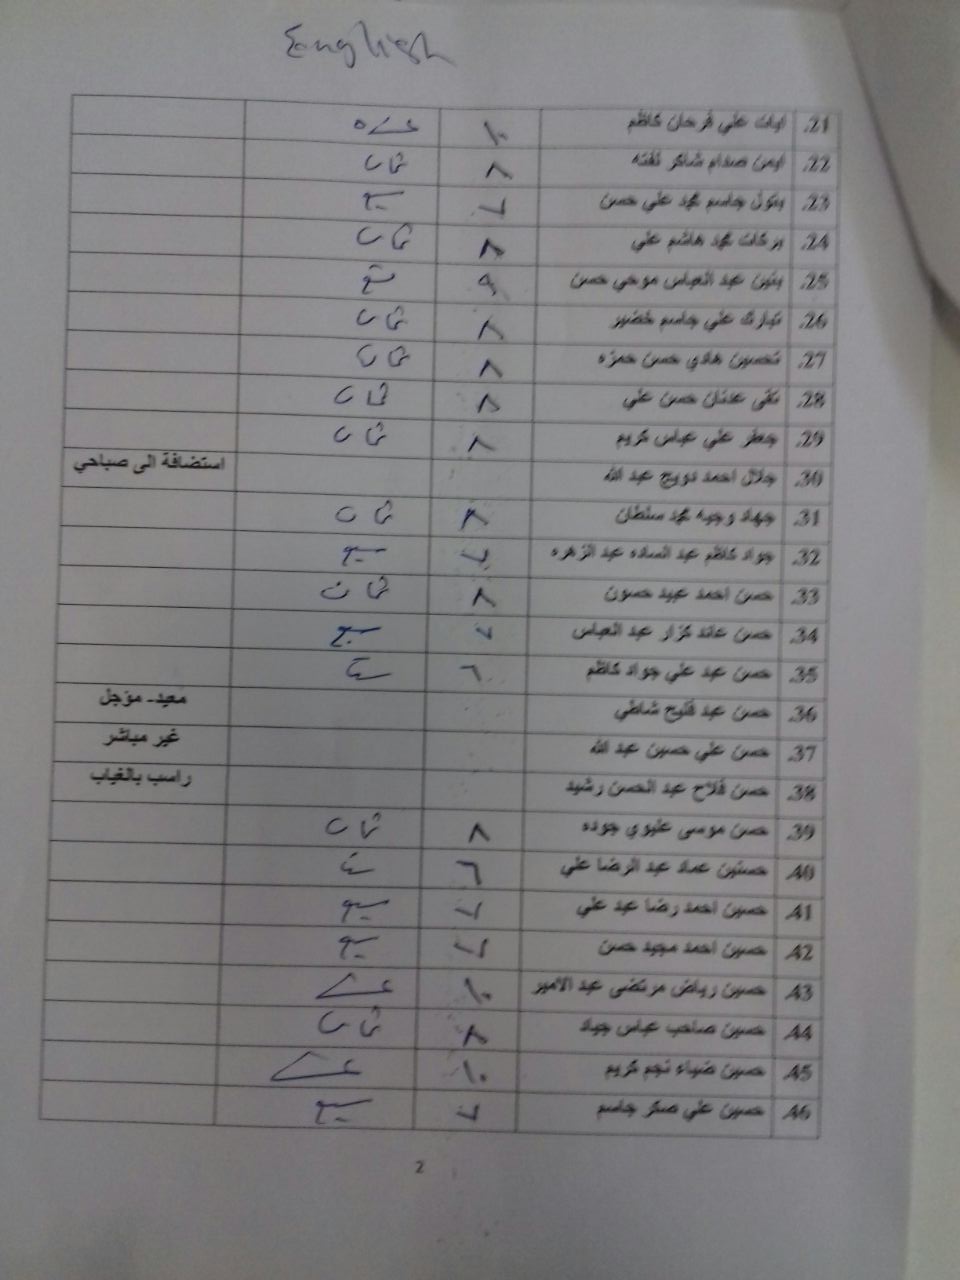 English
21. ايات علي فرحان كاظم ١٠ عشره
22. ايمن صدام شاكر ٨ ثمان
23. بتول جاسم محمد علي حسن ٧ سبع
24. بركات محمد هاشم علي ٨ ثمان
25. بنين عبد العباس موحي حسن ٩ تسع
26. تبارك علي جاسم خضير ٨ ثمان
27. تحسين هادي حسن حمزه ٨ ثمان
28. تقى عدنان حسن علي ٨ ثمان
29. جعفر علي عباس كريم ٨ ثمان
30. جلال احمد دويج عبد الله استضافة الى صباحي
31. جهاد وجيه محمد سلطان ٨ ثمان
32. جواد كاظم عبد الساده عبد الزهره ٧ سبع
33. حسن احمد عبيد حسون ٨ ثمان
34. حسن عائد كزار عبد العباس ٧ سبع
35. حسن عبد علي جواد كاظم ٦ ست
36. حسن عبد فليح شاطي معيد- مؤجل
37. حسن علي حسين عبد الله غير مباشر
38. حسن فلاح عبد الحسن رشيد راسب بالغياب
39. حسن موسى عليوي جوده ٨ ثمان
40. حسنين عماد عبد الرضا علي ٦ ست
41. حسين احمد رضا عبد علي ٧ سبع
42. حسين احمد مجيد حسن ٧ سبع
43. حسين رياض مرتضى عبد الامير ١٠ عشر
44. حسين صاحب عباس جياد ٨ ثمان
45. حسين ضياء نجم كريم ١٠ عشر
46. حسين علي صكر جاسم ٧ سبع
2